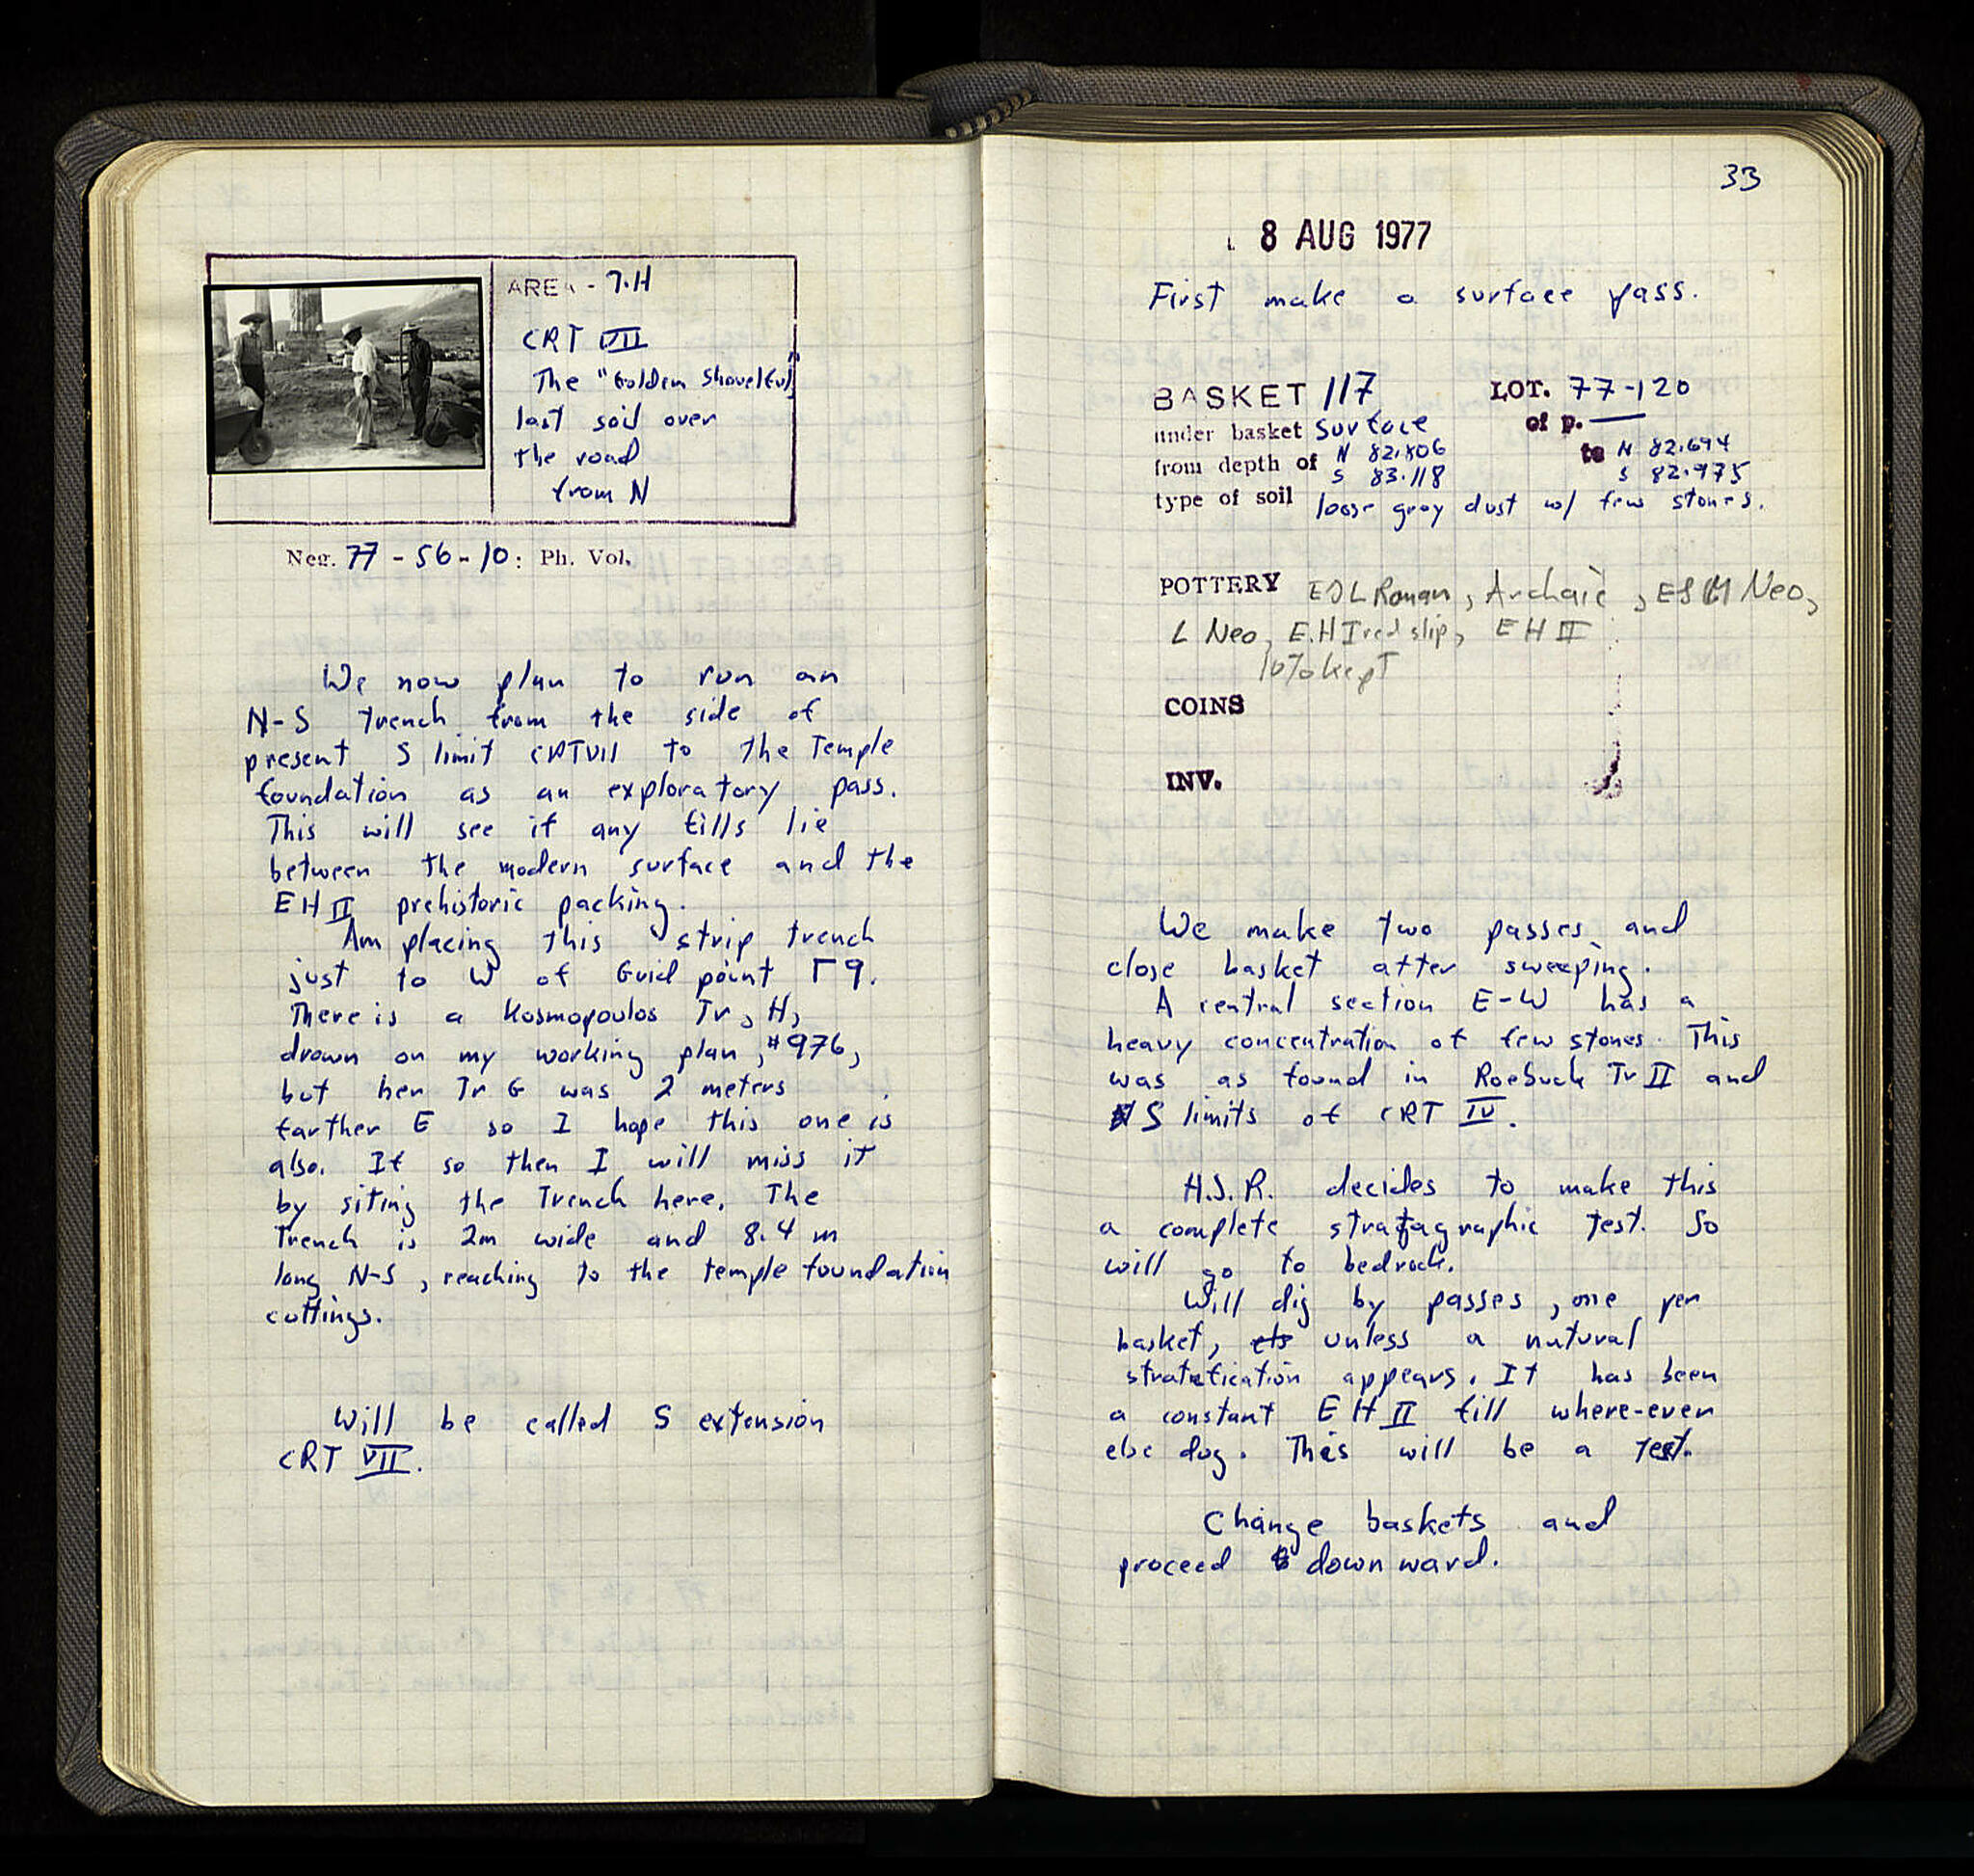 AREA - 7.H
CRT VII
The "Golden Shovelful"
last soil over
the road
from N
Neg. 77 - 56 - 10 : Ph. Vol.
We now plan to run an
N-S trench from the side of
present S limit CRTVII to the Temple
foundation as an exploratory pass.
This will see if any fills lie
between the modern surface and the
EH II prehistoric packing.
Am placing this strip trench
just to W of Guid point Γ9.
There is a Kosmopoulos Tr, H,
drawn on my working plan, #976,
but her Tr G was 2 meters
farther E so I hope this one is
also. If so then I will miss it
by siting the Trench here. The
Trench is 2m wide and 8.4 m
long N-S, reaching to the temple foundation
cuttings.
Will be called S extension
CRT VII.
33
8 AUG 1977
First make a surface pass.
BASKET 117 LOT. 77-120
under basket Surface of p. —
from depth of N 82.806 to N 82.694
S 83.118 S 82.975
type of soil loose gray dust w/ few stones.
POTTERY Roman, Archaic, E & M Neo,
L Neo, E.H I red slip, EH II
10% kept
COINS
INV.
We make two passes and
close basket after sweeping.
A central section E-W has a
heavy concentration of few stones. This
was as found in Roebuck Tr II and
S limits of CRT IV.
H.S.R. decides to make this
a complete stratagraphic test. So
will go to bedrock.
Will dig by passes, one per
basket, unless a natural
stratification appears. It has been
a constant EH II fill where-ever
else dug. This will be a test.
Change baskets and
proceed downward.